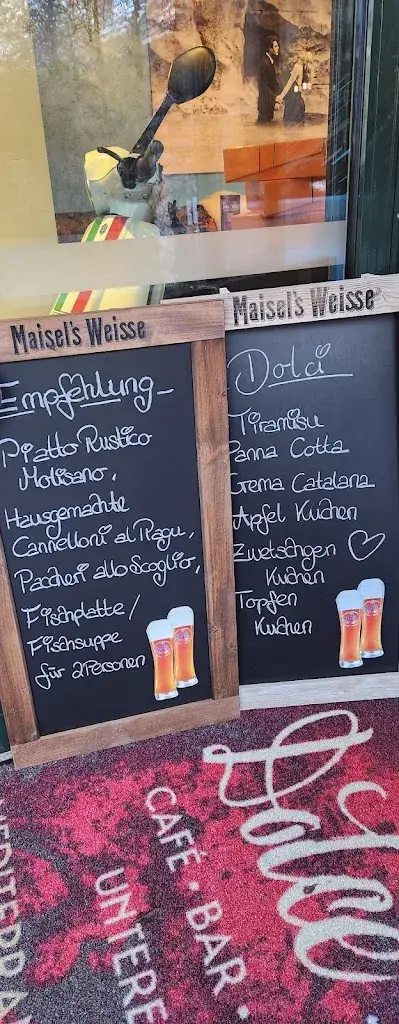 Maisel's Weisse
Empfehlung
Piatto Rustico
Molisano,
Hausgemachte
Cannelloni al Ragu,
Pacheri allo Scoglio,
Fischplatte /
Fischsuppe
für 2 Personen
Maisel's Weisse
Dolci
Tiramisu
Panna Cotta
Crema Catalana
Apfel Kuchen
Zwetschgen
Kuchen
Topfen
Kuchen
Dolce
CAFÉ · BAR ·
UNTERE